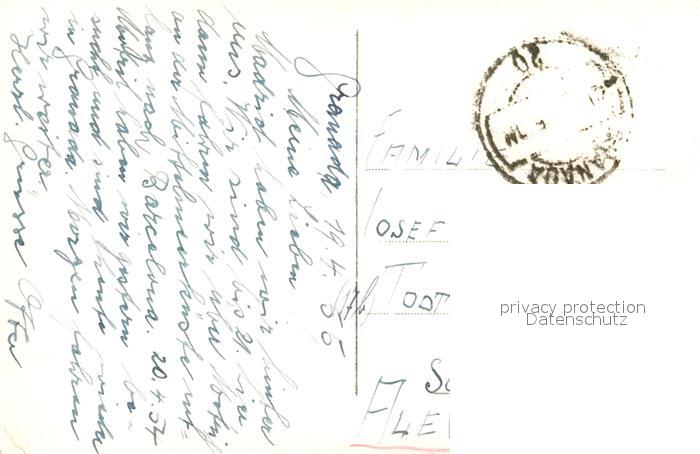 Granada 19.4.56
Meine Lieben!
Madrid haben wir hinter
uns. Wir sind bis 21. hier
dann fahren wir über Motril
an der Mittelmeerküste ent=
lang nach Barcelona. 20.4.54
Motril haben wir gestern be=
sucht und sind heute wieder
in Granada. Morgen fahren
wir weiter.
Herzl. Grüsse
FAMILIE
JOSEF
TODT
ALE
GRANADA
20
privacy protection
Datenschutz